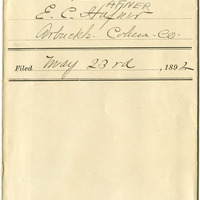 AFNER
E. C. Hafner
Arbuckle. Colusa. Co.
Filed May 23rd, 1892